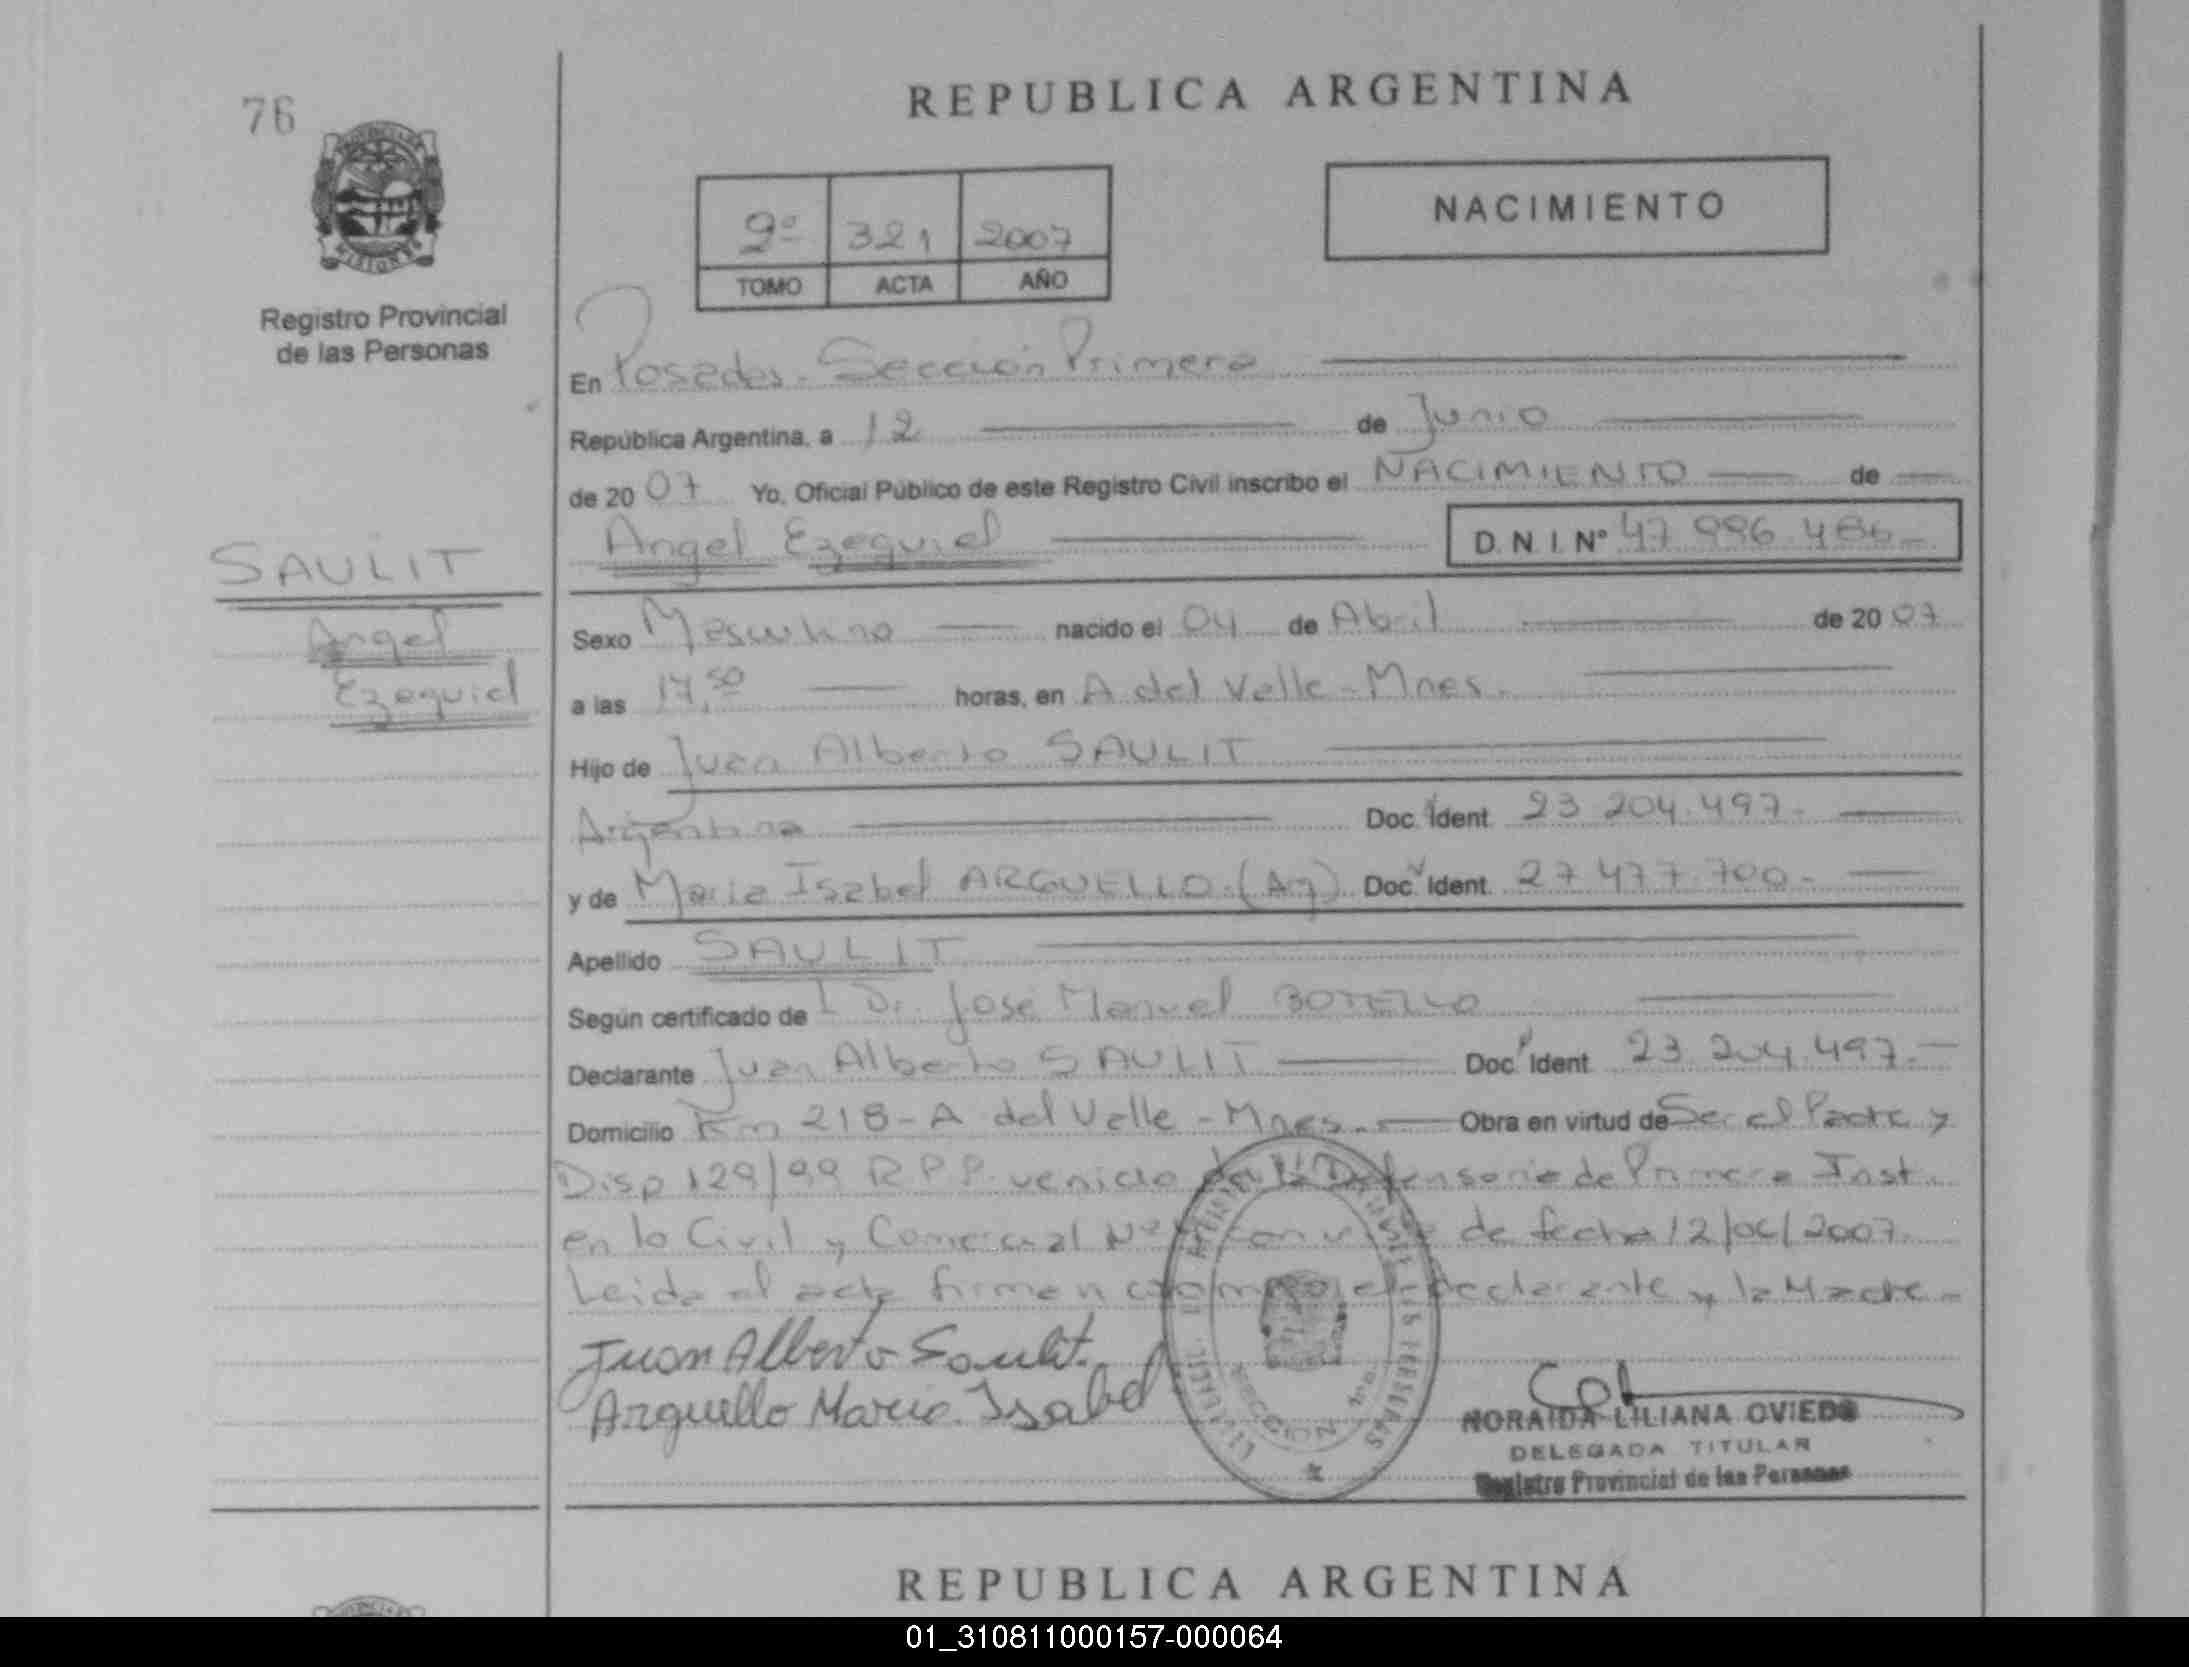 76
REPUBLICA ARGENTINA
9º 321 2007
TOMO ACTA AÑO
NACIMIENTO
Registro Provincial
de las Personas
En Posadas. Sección Primera
República Argentina, a 12 de Junio
de 2007 Yo, Oficial Público de este Registro Civil inscribo el NACIMIENTO de
Angel Ezequiel D.N.I. Nº 47.996.486
SAULIT
Angel
Ezequiel
Sexo Masculino nacido el 04 de Abril de 2007
a las 17,50 horas, en A del Valle - Mnes.
Hijo de Juan Alberto SAULIT
Argentina Doc. Ident. 23 204.497.-
y de Maria Isabel ARGUELLO (Arg) Doc. Ident. 27 477.700.-
Apellido SAULIT
Según certificado de l Dr. José Manuel BOTELLO
Declarante Juan Alberto SAULIT Doc. Ident. 23.204.497.-
Domicilio Km 218 - A del Valle - Mnes. - Obra en virtud de Ser el Padre y
Disp 129/99 R.P.P. de la Defensoria de Primera Inst.
en lo Civil y Comercial Nº de fecha 12/06/2007.
Leida el acta firman el declarante y la Madre -
Juan Alberto Saulit.
Arguello Maria Isabel
SECCION 1ra.
NORAIDA LILIANA OVIEDO
DELEGADA TITULAR
Registro Provincial de las Personas
REPUBLICA ARGENTINA
01_310811000157-000064